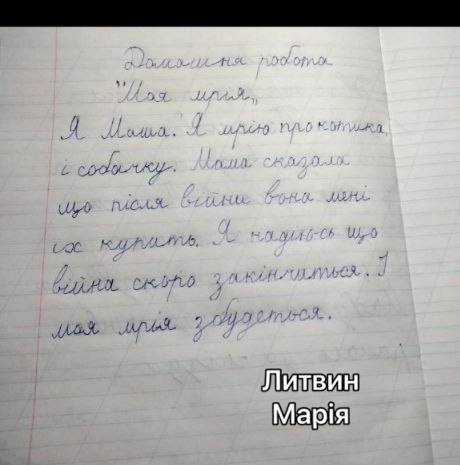 Домашня робота
"Моя мрія„
Я Маша. Я мрію про котика,
і собачку. Мама сказала
що після війни вона мені
їх купить. Я надіюсь що
війна скоро закінчиться. І
моя мрія збудеться.
Литвин
Марія